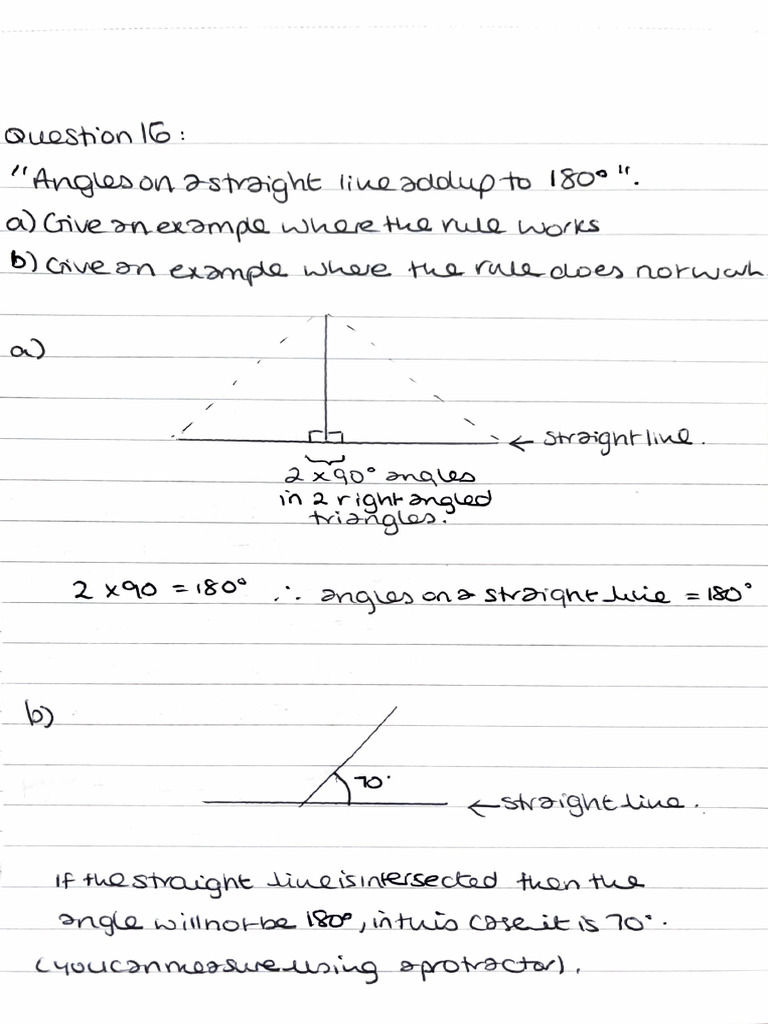 Question 16:
"Angles on a straight line add up to 180°".
a) Give an example where the rule works
b) Give an example where the rule does not work
a)
← straight line.
2 x 90° angles
in 2 right angled
triangles.
2 x 90 = 180° ∴ angles on a straight line = 180°
b)
70°
← straight line.
If the straight line is intersected then the
angle will not be 180°, in this case it is 70°.
(you can measure using a protractor).